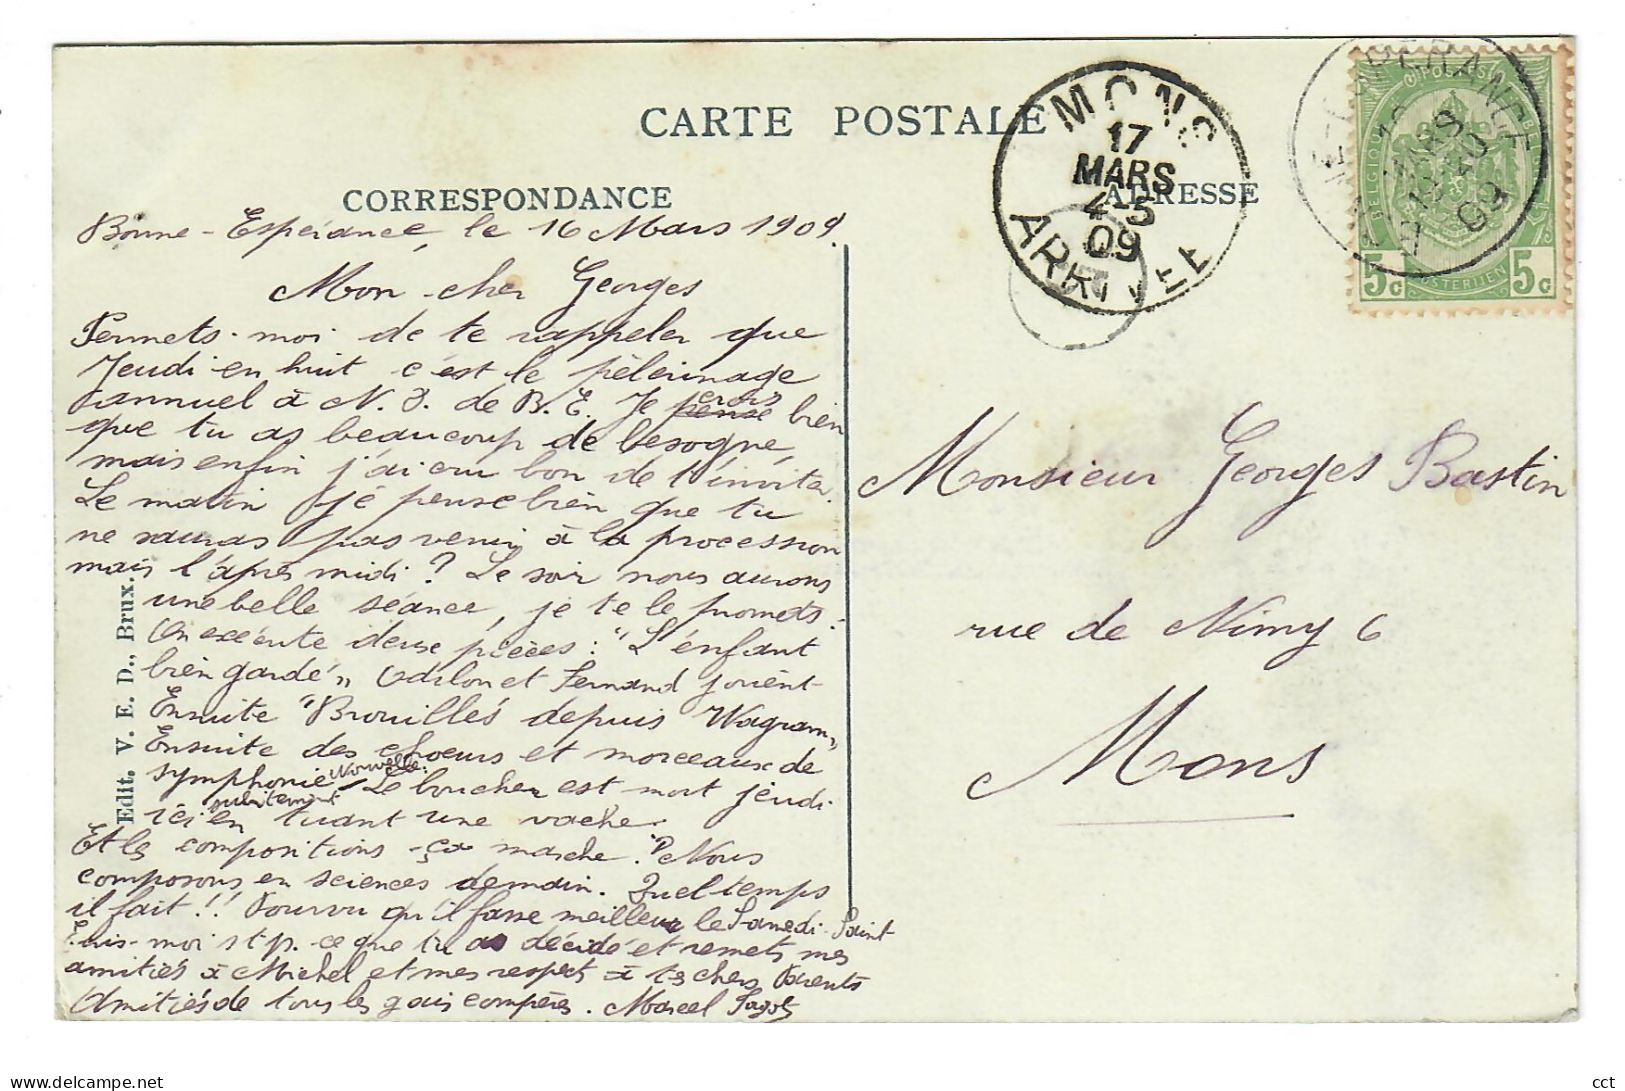 CARTE POSTALE
CORRESPONDANCE
ADRESSE
MONS
17
MARS
4-5
09
ARRIVEE
PERANCE
MARS
09
BELGIQUE
POSTES
5c 5c
Bonne-Espérance, le 16 Mars 1909.
Mon cher Georges
Permets-moi de te rappeler que
Jeudi en huit c'est le pèlerinage
annuel à N. D. de B. E. Je pense crois bien
que tu as beaucoup de besogne,
mais enfin j'ai cru bon de t'inviter.
Le matin je pense bien que tu
ne sauras pas venir à la procession
mais l'après midi ? Le soir nous aurons
une belle séance, je te le promets.
On exécute deux pièces : "L'enfant
bien gardé" Odilon et Fernand jouent-
Ensuite "Brouillés depuis Wagram"
Ensuite des choeurs et morceaux de
symphonie Nouvelle: Le boucher est mort jeudi
ici subitement en tuant une vache.
Et les compositions ça marche ? Nous
composons en sciences demain. Quel temps
il fait !! Pourvu qu'il fasse meilleur le Samedi-Saint
Ecris-moi s t p. ce que tu as décidé et remets mes
amitiés à Michel et mes respects à tes chers Parents
Amitiés de tous les gais compères. Marcel
Edit. V. E. D., Brux.
Monsieur Georges Bastin
rue de Nimy 6
Mons
cct